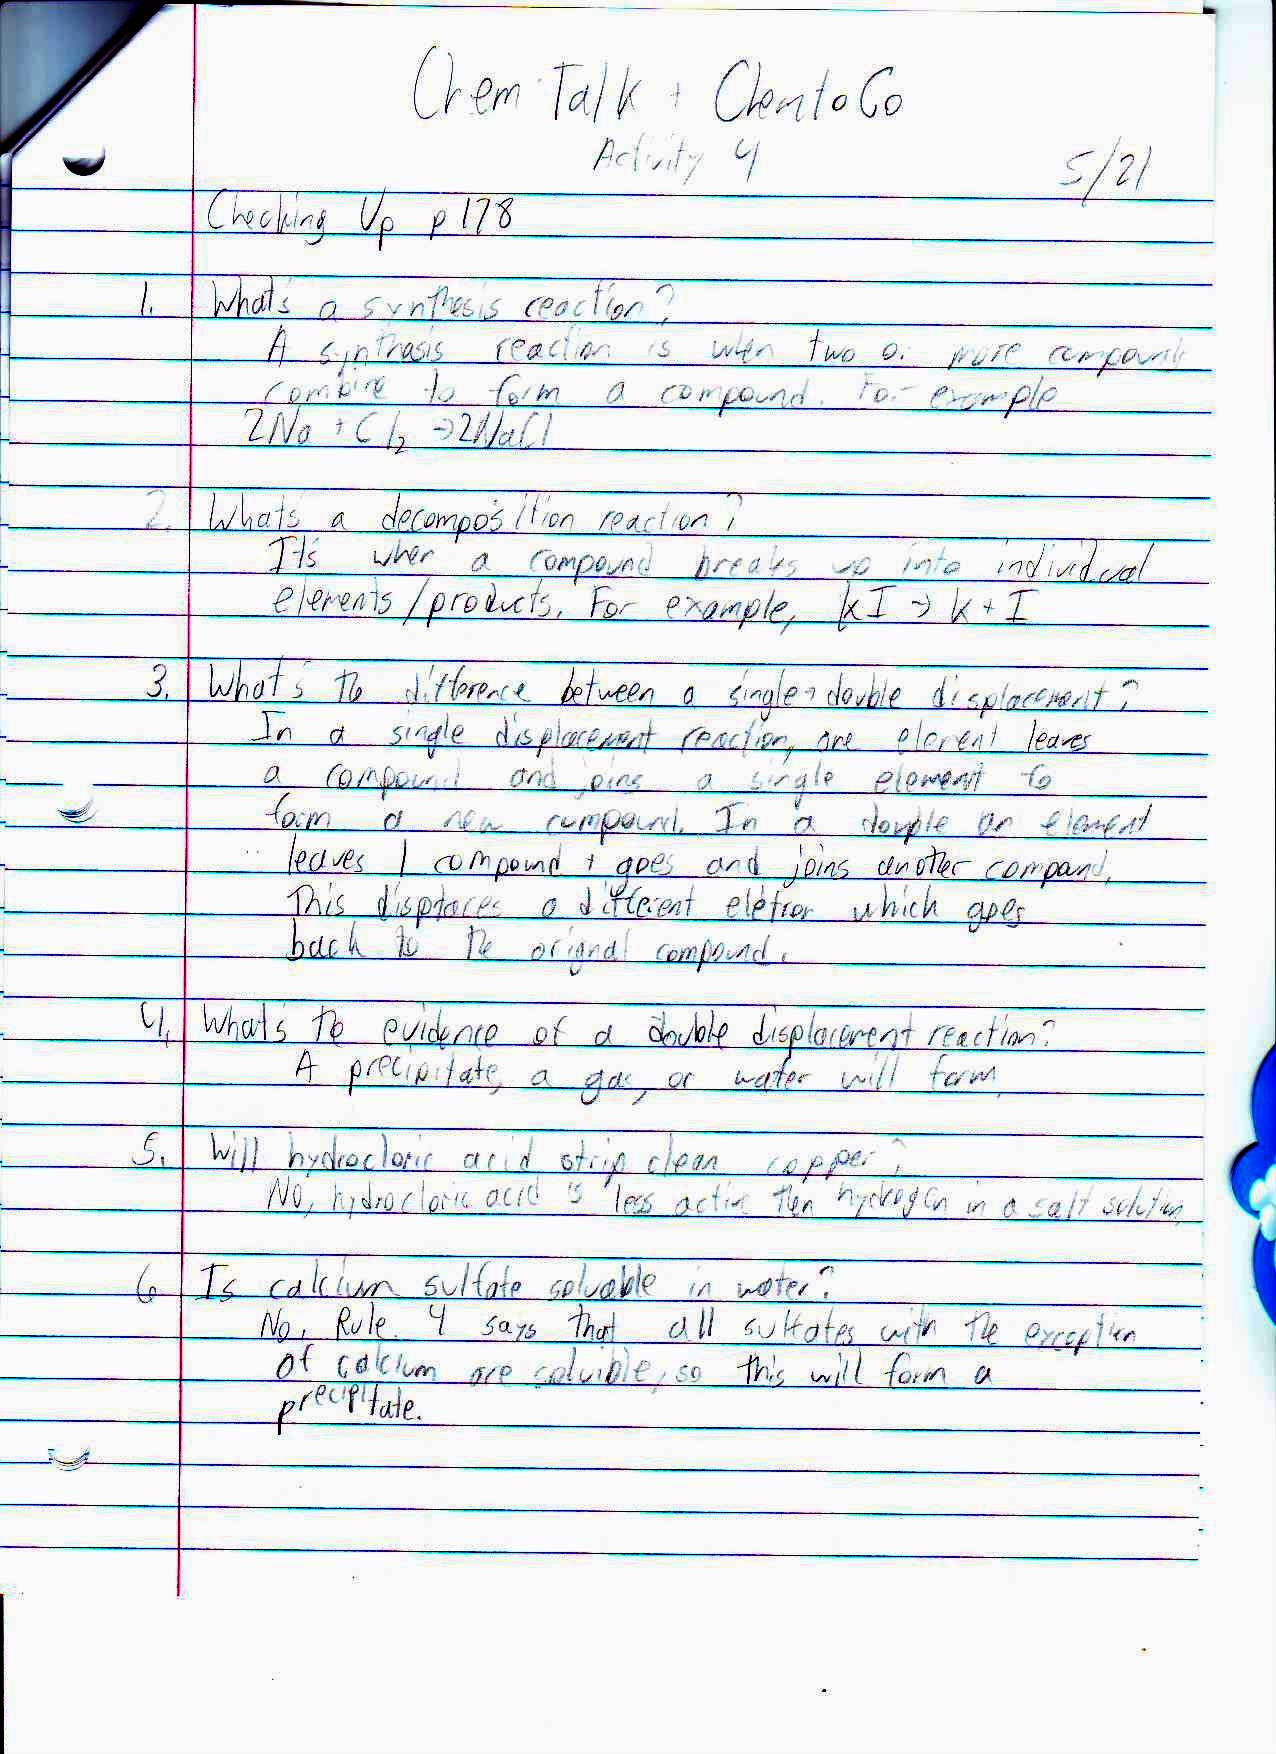 Chem Talk + Chem to Go
Activity 4
5/21
Checking Up p 178
1. What's a synthesis reaction?
A synthasis reaction is when two or more compounds
combine to form a compound. For example
2Na + Cl2 → 2NaCl
2. What's a decomposition reaction?
It's when a compound breaks up into individual
elements/products. For example, KI → K + I
3. What's the difference between a single + double displacement?
In a single displacement reaction, one element leaves
a compound and joins a single element to
form a new compound. In a double an element
leaves 1 compound + goes and joins another compound,
This displaces a different eletron which goes
back to the orignal compound.
4. What's the evidence of a double displacement reaction?
A precipitate, a gas, or water will form.
5. Will hydrocloric acid strip clean copper?
No, hydrocloric acid is less active then hydrogen in a salt solution.
6 Is calcium sulfate soluable in water?
No, Rule 4 says that all sulfates with the exception
of calcium are soluible, so this will form a
precipitate.